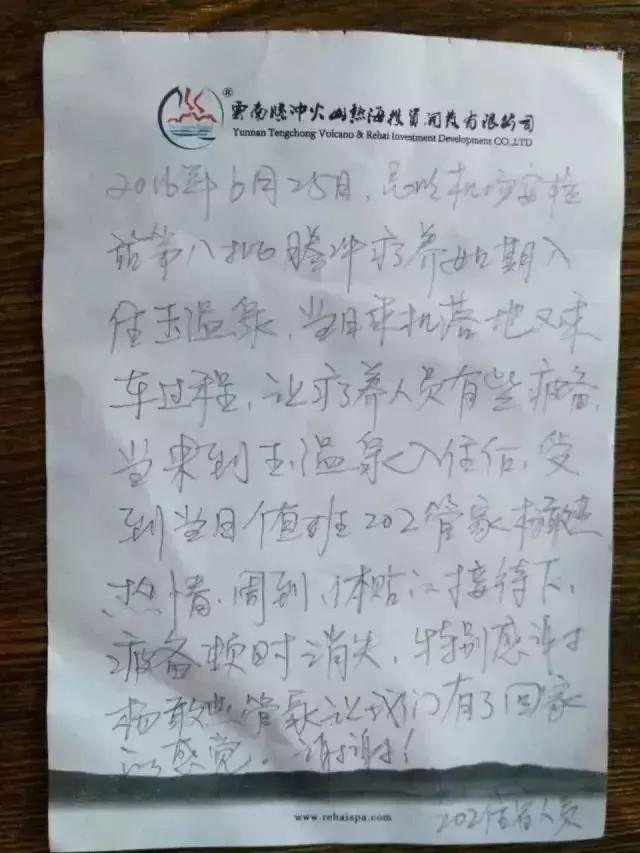 ®
云南腾冲火山热海投资开发有限公司
Yunnan Tengchong Volcano & Rehai Investment Development CO.,LTD
2016年6月25日，机场安检
站第八批腾冲疗养如期入
住玉温泉，当日乘机落地又乘
车过程，让疗养人员有些疲备，
当来到玉温泉入住后，受
到当日值班202管家杨敢
热情、周到、体贴的接待下，
疲备顿时消失，特别感谢
杨敢管家让我们有了回家
的感觉。谢谢！
www.rehaispa.com
202宿人员